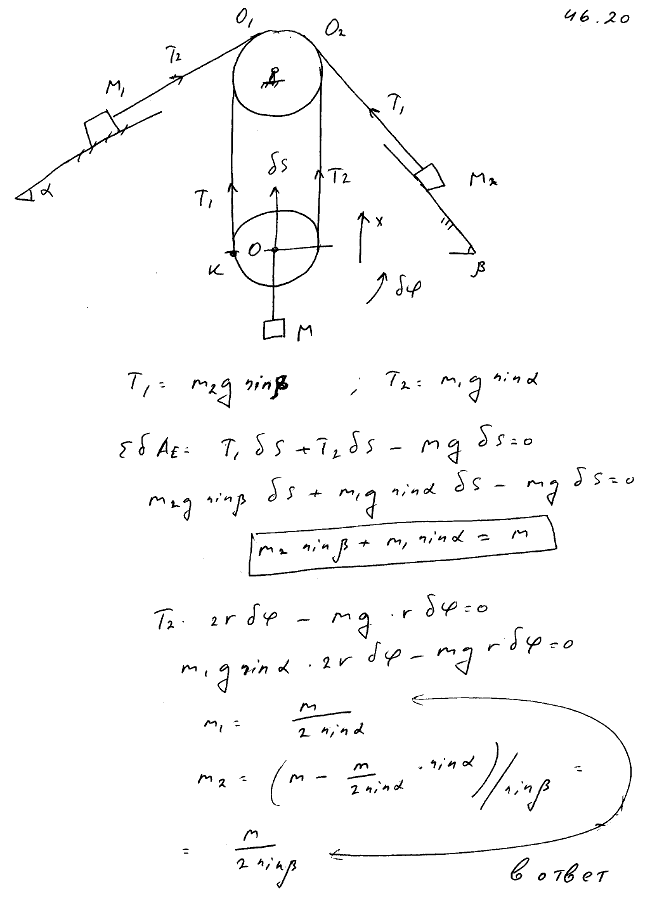 46.20
O₁ O₂
T₂
M₁
T₁
δS
M₂
α
T₁ T₂
x
K O
β
δφ
M
T₁ = m₂g sinβ ; T₂ = m₁g sinα
ΣδA_E = T₁ δS + T₂ δS − mg δS = 0
m₂g sinβ δS + m₁g sinα δS − mg δS = 0
m₂ sinβ + m₁ sinα = m
T₂ · 2r δφ − mg · r δφ = 0
m₁g sinα · 2r δφ − mg r δφ = 0
m₁ = m / 2 sinα
m₂ = (m − m / 2 sinα · sinα) / sinβ =
= m / 2 sinβ
в ответ